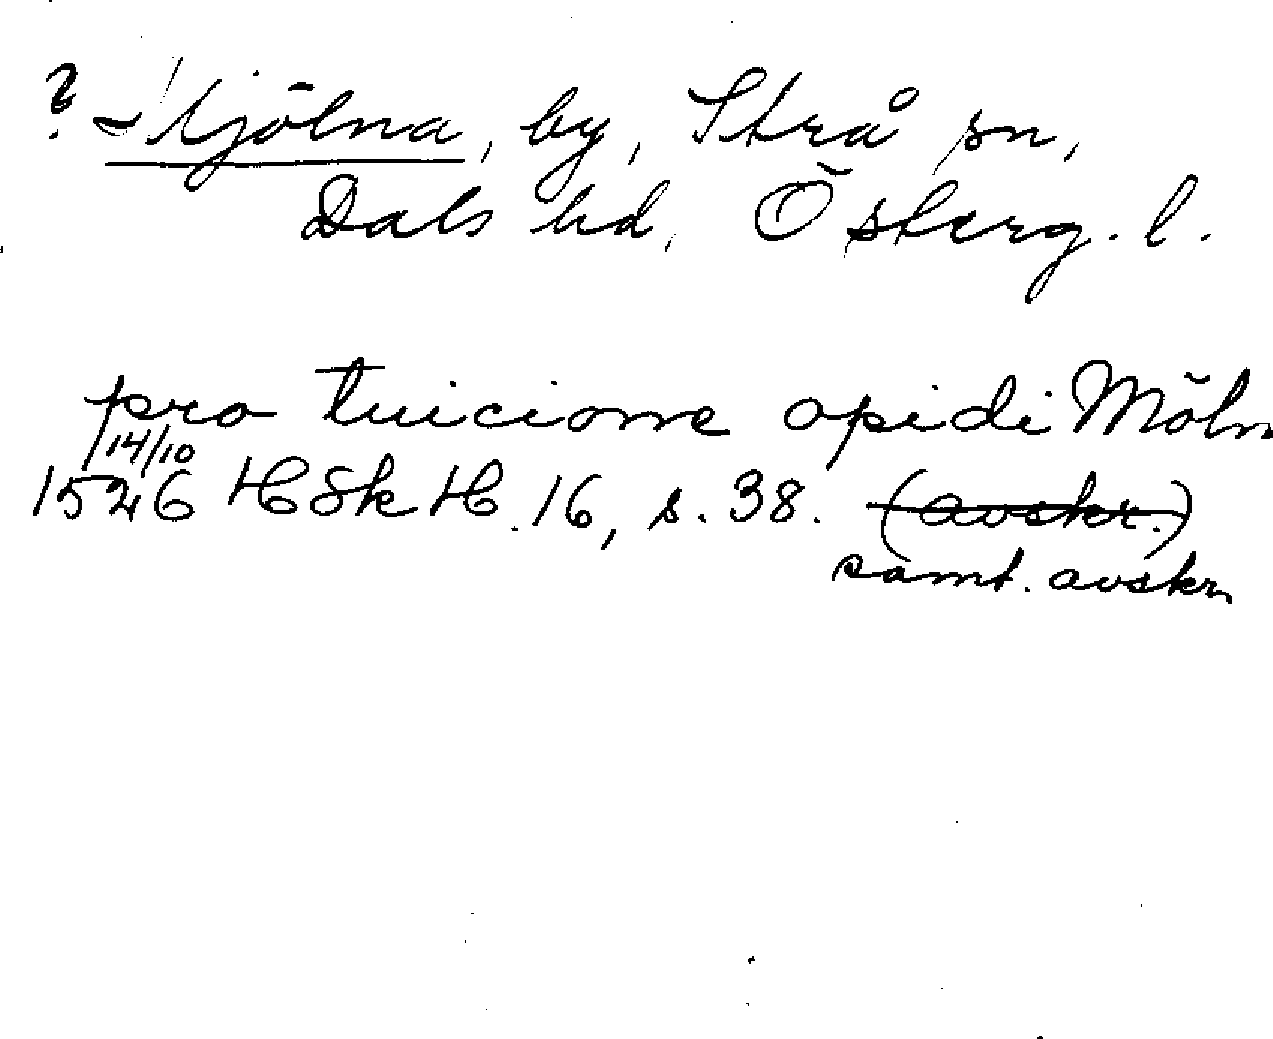 ? Kjölna, by, Strå sn,
Dals hd, Österg. l.
pro tuicione opidi Möln
14/10
1526 HSkH. 16, s. 38. (avskr.)
samt. avskr.